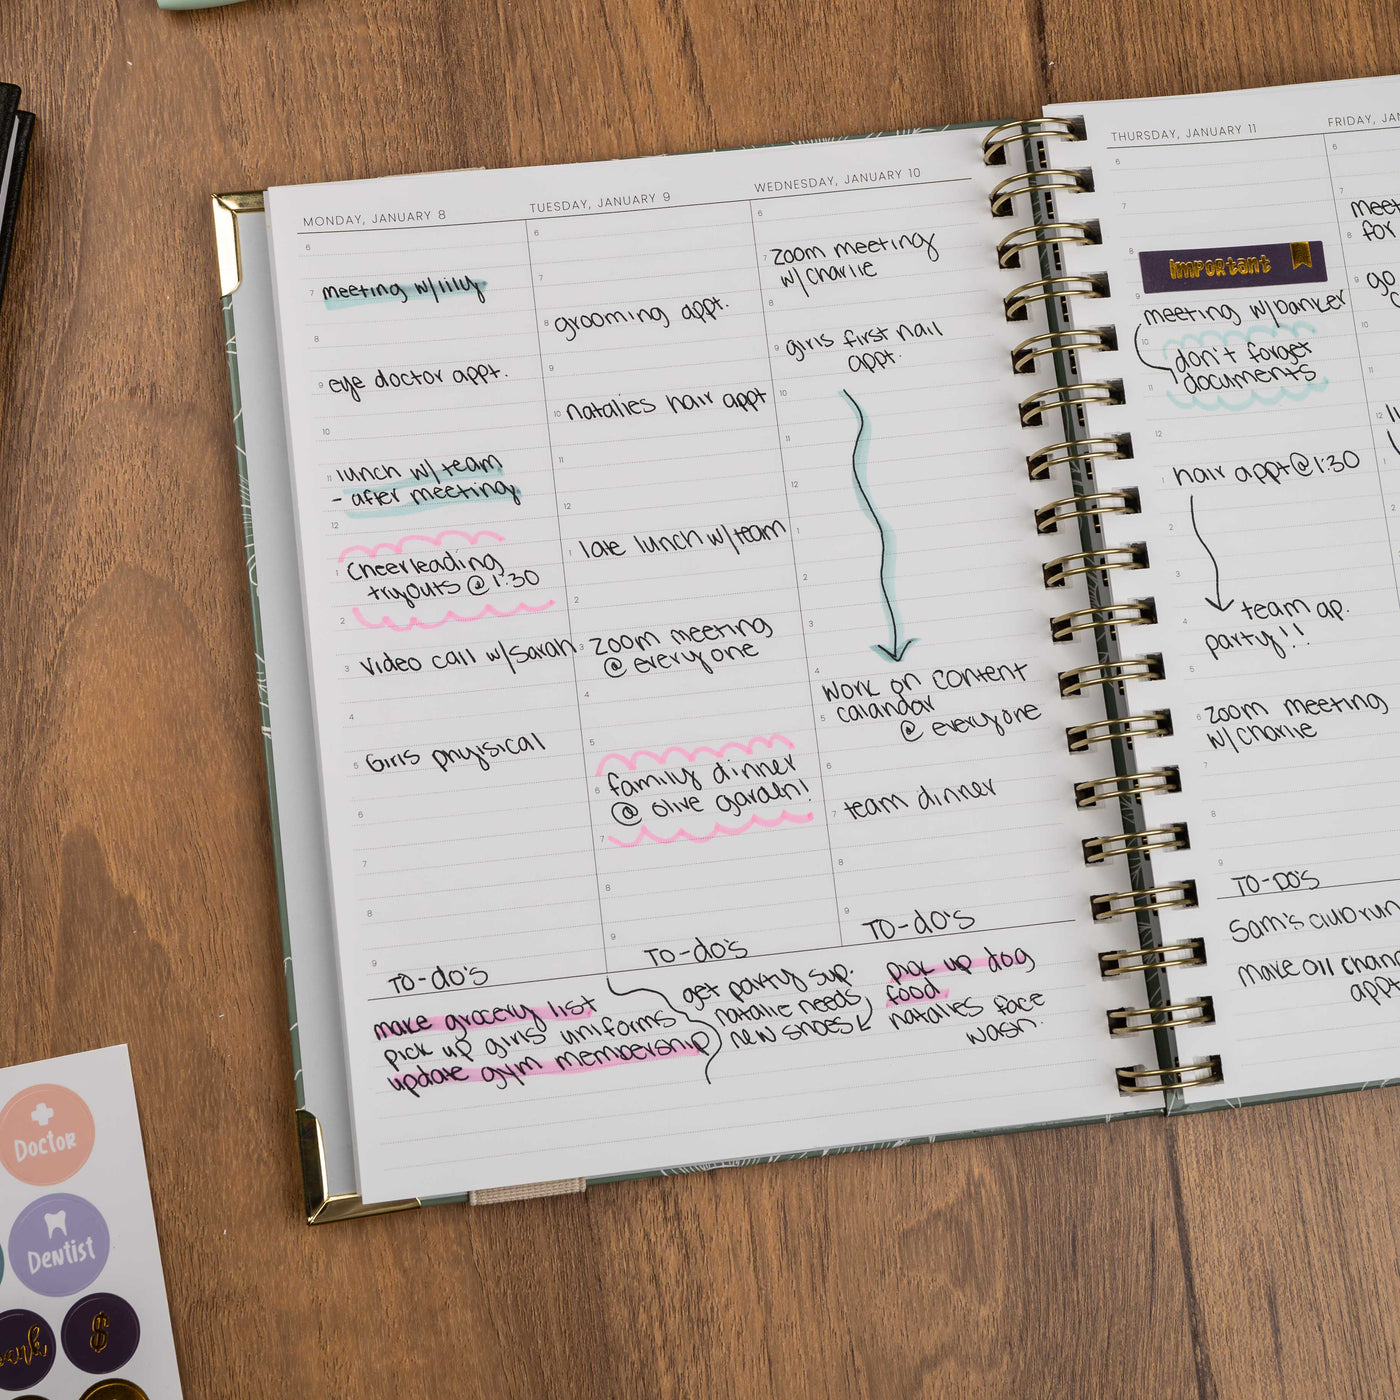 MONDAY, JANUARY 8
6
7 meeting w/lily
8
9 eye doctor appt.
10
11 lunch w/ team
- after meeting
12
Cheerleading
1 tryouts @ 1:30
2
3 video call w/Sarah
4
5 Girls phyisical
6
7
8
9
TO-do's
make grocery list
pick up girls uniforms
update gym membership
TUESDAY, JANUARY 9
6
7
8 grooming appt.
9
10 natalies hair appt
11
12
1 late lunch w/team
2
3 Zoom meeting
@ everyone
4
5
family dinner
6 @ olive garden!
7
8
9
TO-do's
get party sup.
natalie needs
new shoes
WEDNESDAY, JANUARY 10
6
7 zoom meeting
w/ Charlie
8
9 girls first nail
appt.
10
11
12
1
2
3
4
work on content
5 calandar
@ everyone
6
7 team dinner
8
9
TO-do's
pick up dog
food
natalies face
wash.
THURSDAY, JANUARY 11
6
7
8
important
9
meeting w/banker
10
don't forget
11 documents
12
1 hair appt@1:30
2
3
4 team ap.
party!!
5
6 zoom meeting
w/ Charlie
7
8
9
TO-DO'S
Sam's club run
make oil
appt
FRIDAY,
6
7
8 for
9 go
10
11
12
1
2
Doctor
Dentist
$